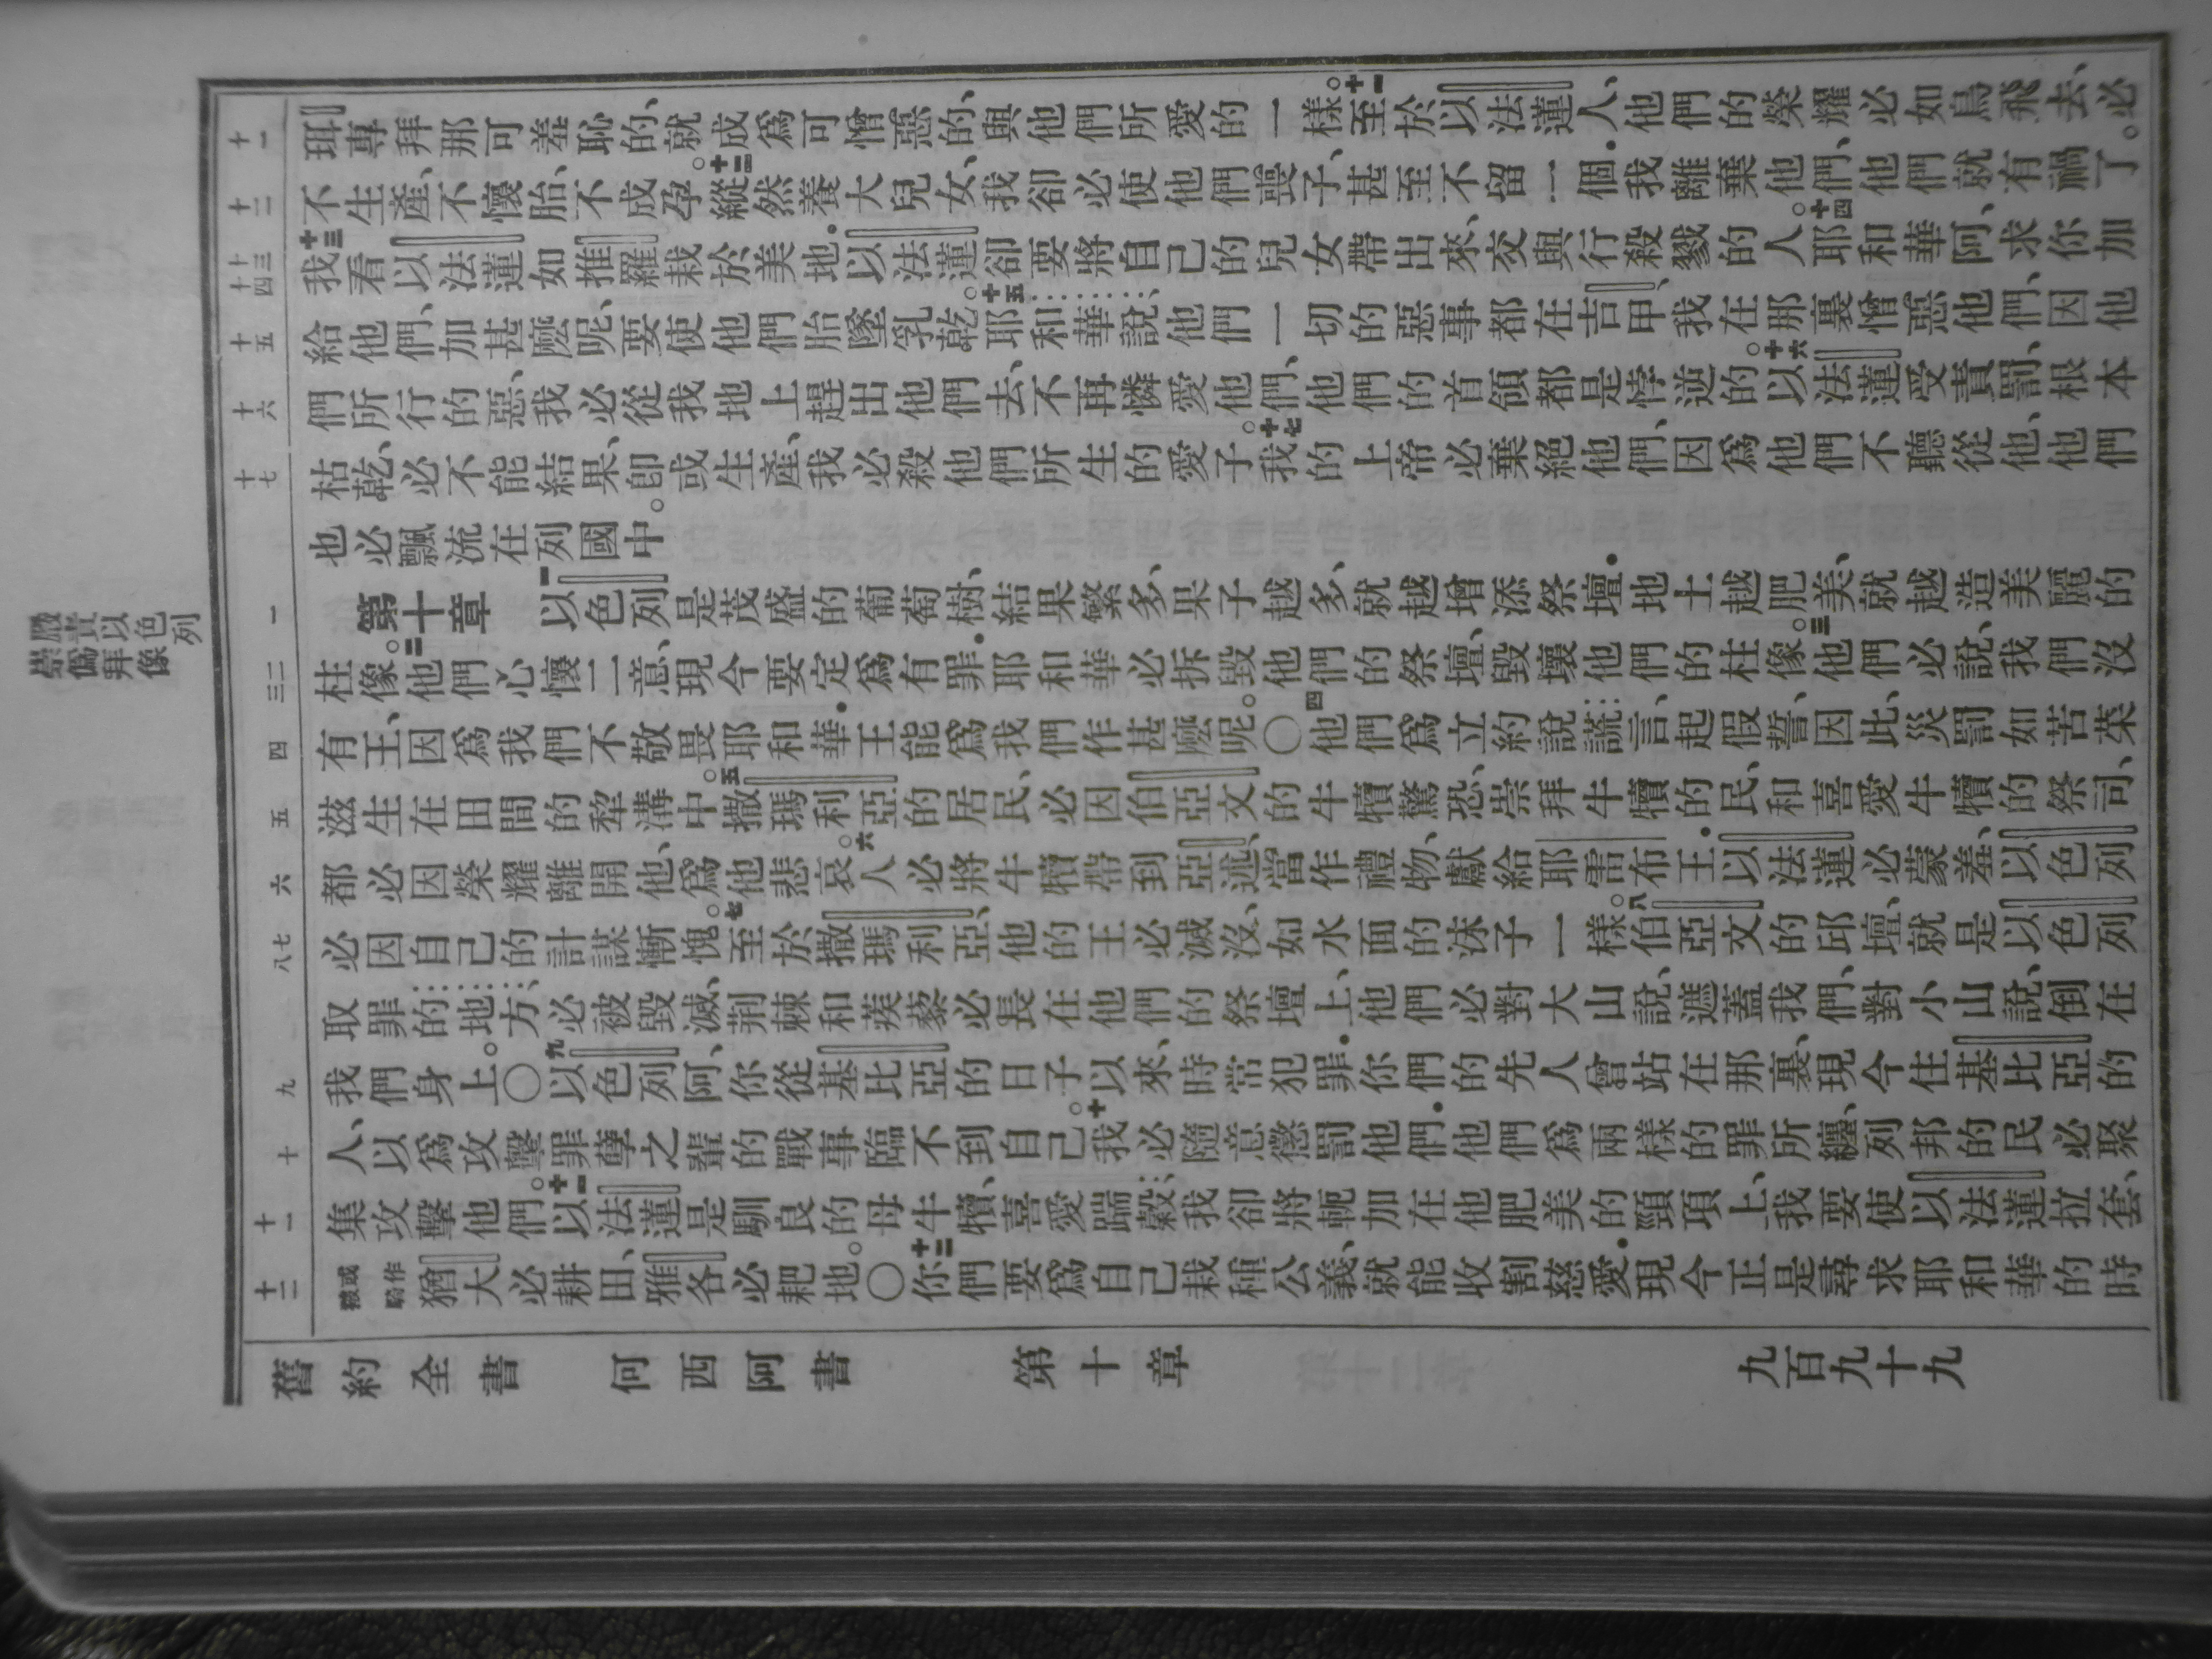 珥專拜那可羞恥的、就成爲可憎惡的、與他們所愛的一樣。十一至於以法蓮人、他們的榮耀必如鳥飛去、必
不生產、不懷胎、不成孕。十二縱然養大兒女、我卻必使他們喪子、甚至不留一個．我離棄他們、他們就有禍了。
十三我看以法蓮如推羅栽於美地．以法蓮卻要將自己的兒女帶出來、交與行殺戮的人。十四耶和華阿、求你加
給他們、加甚麼呢、要使他們胎墜乳乾。十五耶和華說、他們一切的惡事都在吉甲、我在那裏憎惡他們、因他
們所行的惡、我必從我地上趕出他們去、不再憐愛他們、他們的首領都是悖逆的。十六以法蓮受責罰、根本
枯乾、必不能結果、卽或生產、我必殺他們所生的愛子。十七我的上帝必棄絕他們、因爲他們不聽從他、他們
也必飄流在列國中。
第十章 一以色列是茂盛的葡萄樹、結果繁多、果子越多、就越增添祭壇．地土越肥美、就越造美麗的
柱像。二他們心懷二意、現今要定爲有罪．耶和華必拆毀他們的祭壇、毀壞他們的柱像。三他們必說、我們沒
有王、因爲我們不敬畏耶和華．王能爲我們作甚麼呢。〇四他們爲立約說謊言、起假誓、因此、災罰如苦菜
滋生在田間的犂溝中。五撒瑪利亞的居民、必因伯亞文的牛犢驚恐、崇拜牛犢的民、和喜愛牛犢的祭司、
都必因榮耀離開他、爲他悲哀。六人必將牛犢帶到亞述、當作禮物、獻給耶雷布王．以法蓮必蒙羞、以色列
必因自己的計謀慚愧。七至於撒瑪利亞、他的王必滅沒、如水面的沫子一樣。八伯亞文的邱壇、就是以色列
取罪的地方、必被毀滅、荆棘和蒺藜必長在他們的祭壇上、他們必對大山說、遮蓋我們、對小山說、倒在
我們身上。〇九以色列阿、你從基比亞的日子以來、時常犯罪．你們的先人曾站在那裏、現今住基比亞的
人、以爲攻擊罪孽之輩的戰事臨不到自己。十我必隨意懲罰他們．他們爲兩樣的罪所纏、列邦的民必聚
集攻擊他們。十一以法蓮是馴良的母牛犢、喜愛踹穀、我卻將軛加在他肥美的頸項上、我要使以法蓮拉套、
或作被騎 猶大必耕田、雅各必耙地。〇十二你們要爲自己栽種公義、就能收割慈愛．現今正是尋求耶和華的時
舊約全書 何西阿書 第十章 九百九十九
十一
十二
十三
十四
十五
十六
十七
一
二
三
四
五
六
七
八
九
十
十一
十二
嚴責以色列
崇爲拜像